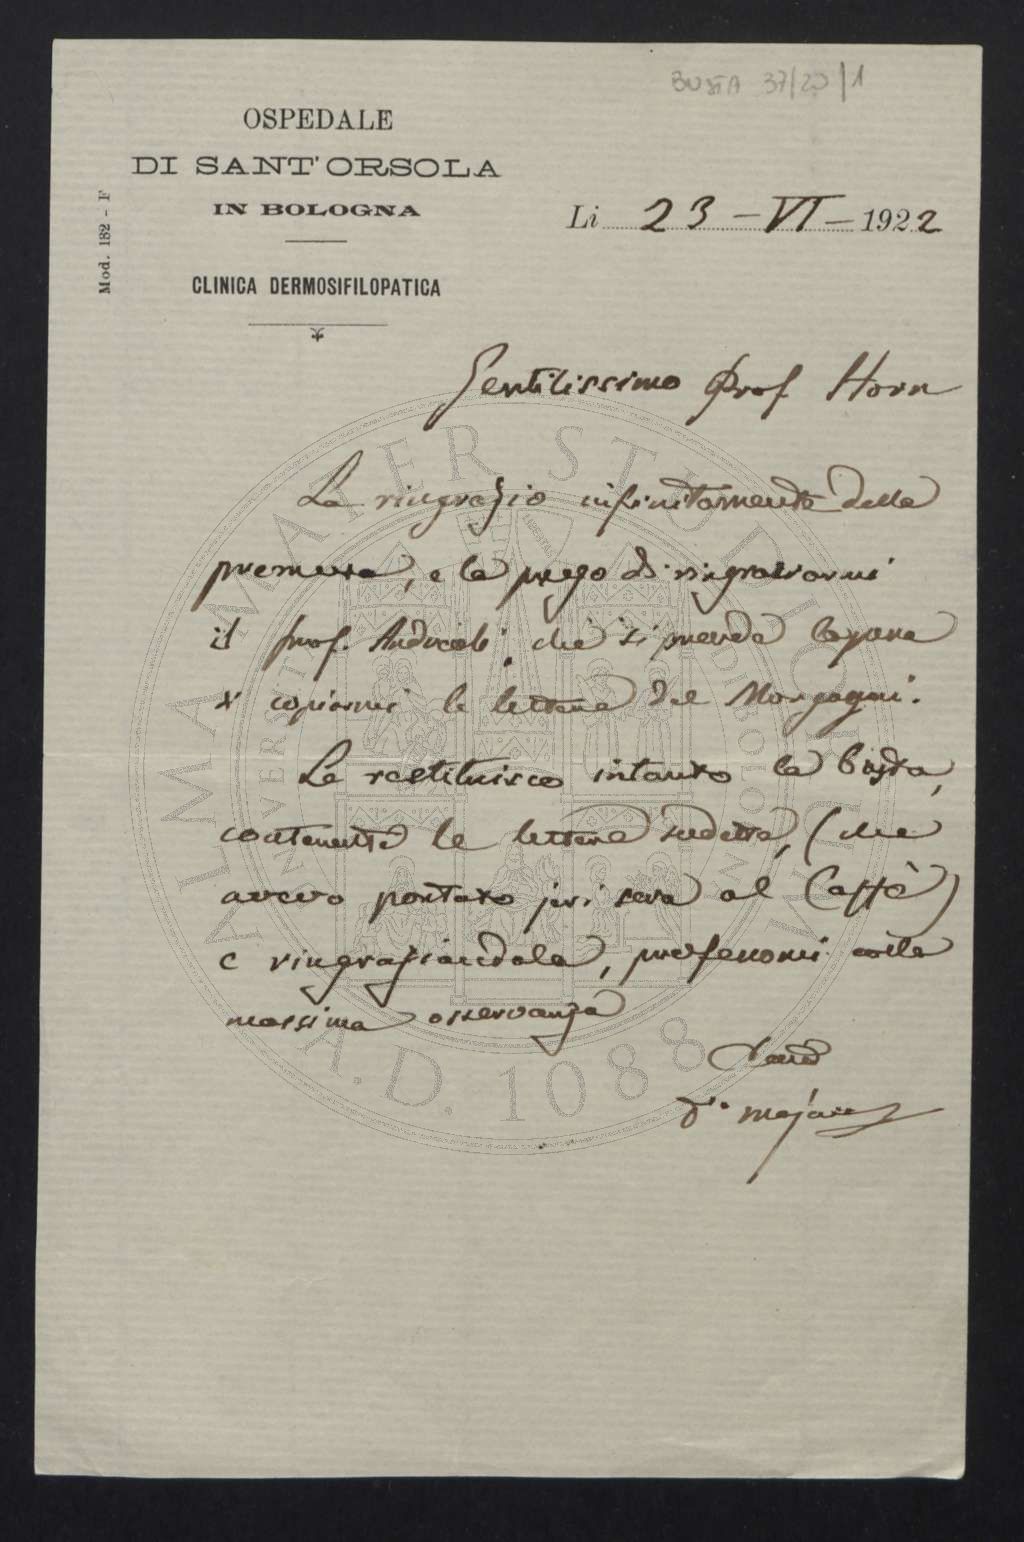 BUSTA 37/20/1
OSPEDALE
DI SANT'ORSOLA
IN BOLOGNA
Mod. 182 - F
Li 23 - VI - 1922
CLINICA DERMOSIFILOPATICA
Gentilissimo Prof Horn
La ringrazio infinitamente della
premura, e la prego di ringraziarmi
il prof. che si prenda la pena
di copiarmi le lettere del Morgagni.
Le restituisco intanto la busta,
contenente le lettere sudette, (che
avevo portato jeri sera al Caffè)
e ringraziandola, professomi colla
massima osservanza
Majocchi
ALMA MATER STUDIORUM
A.D. 1088